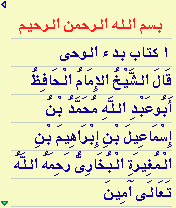 بسم الله الرحمن الرحيم
١ كتاب بدء الوحى
قَالَ الشَّيْخُ الإِمَامُ الْحَافِظُ
أَبُو عَبْدِ اللَّهِ مُحَمَّدُ بْنُ
إِسْمَاعِيلَ بْنِ إِبْرَاهِيمَ بْنِ
الْمُغِيرَةِ الْبُخَارِىُّ رَحِمَهُ اللَّهُ
تَعَالَى آمِينَ